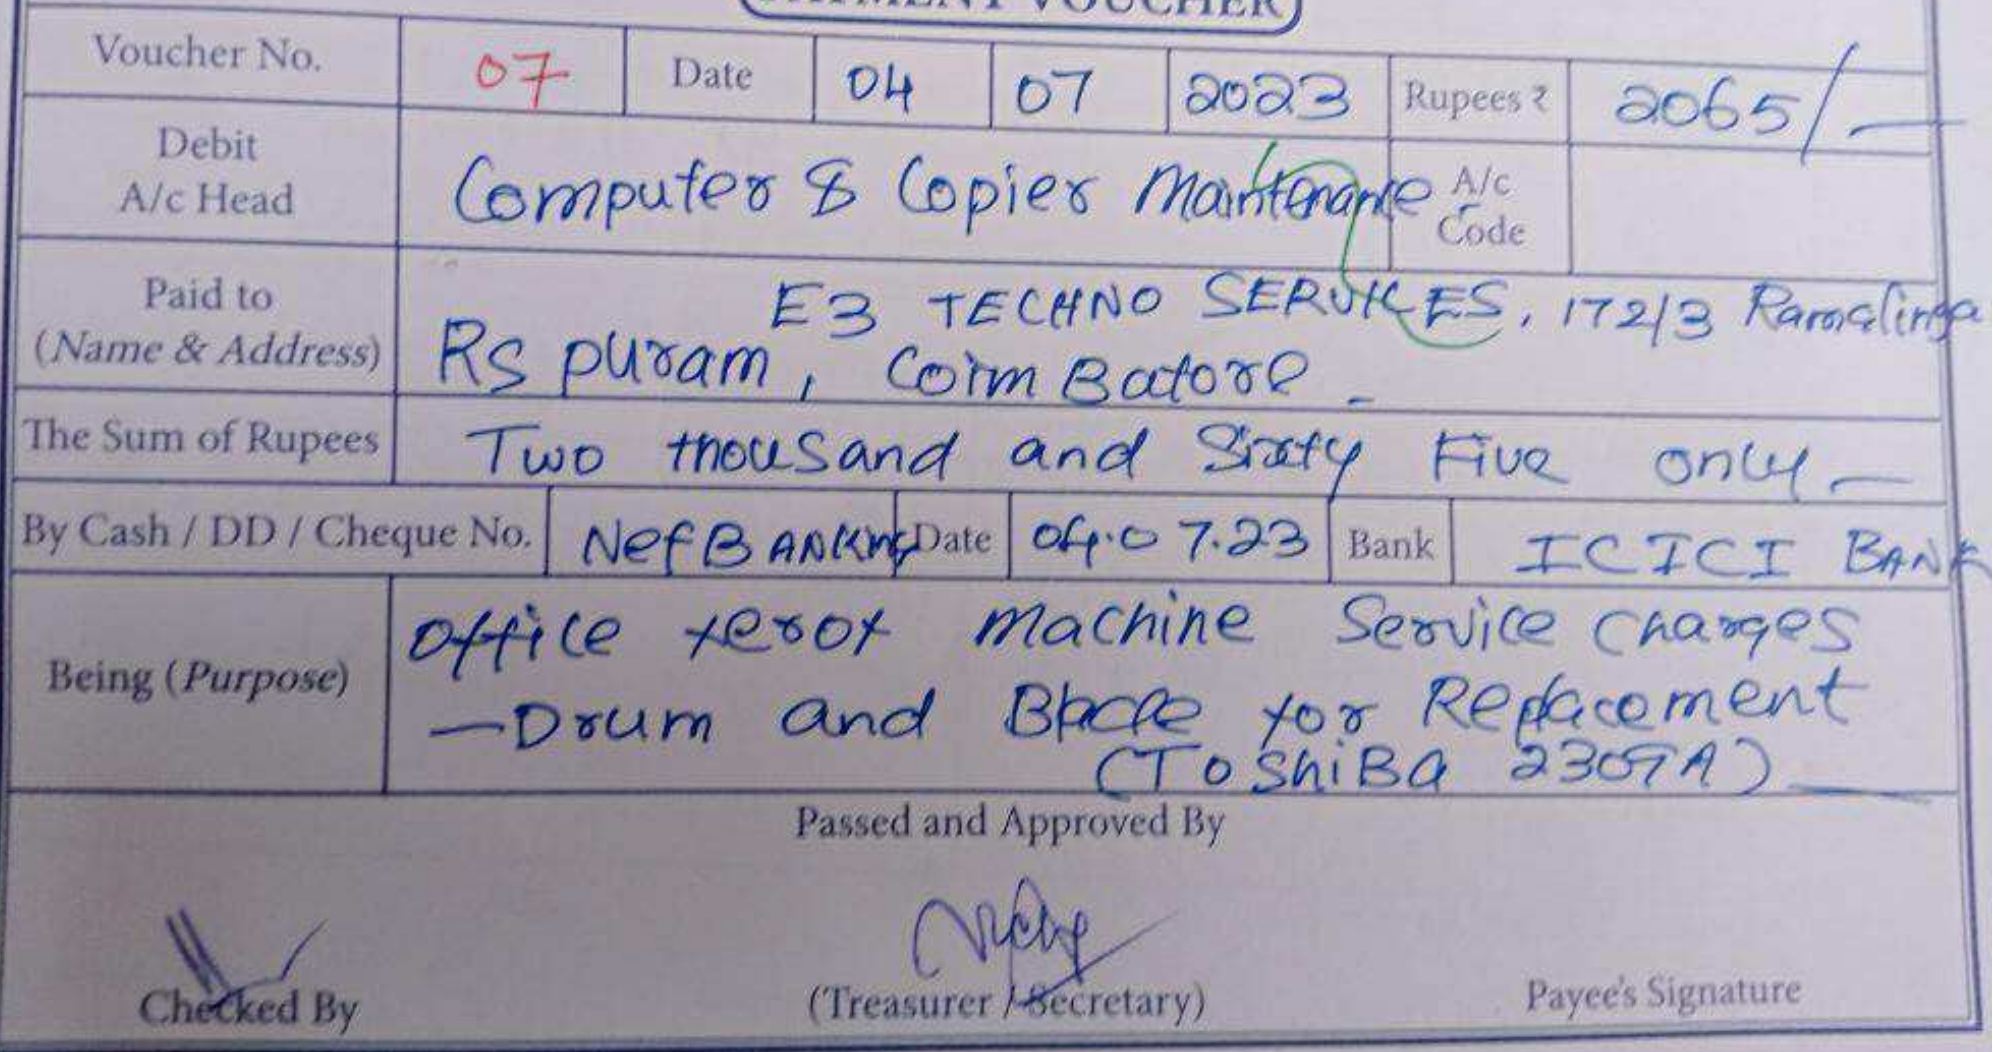 PAYMENT VOUCHER
Voucher No. 07 Date 04 07 2023 Rupees ₹ 2065/-
Debit A/c Head Computer & Copier Maintenance A/c Code
Paid to (Name & Address) E3 TECHNO SERVICES, 172/3 Ramalinga
RS puram, Coim Batore -
The Sum of Rupees Two thousand and Sixty Five only -
By Cash / DD / Cheque No. Nef BANKing Date 04.07.23 Bank ICICI BANK
Being (Purpose) Office xerox machine Service charges
- Drum and for Replacement
(ToshiBa 2309A)
Passed and Approved By
Checked By (Treasurer / Secretary) Payee's Signature